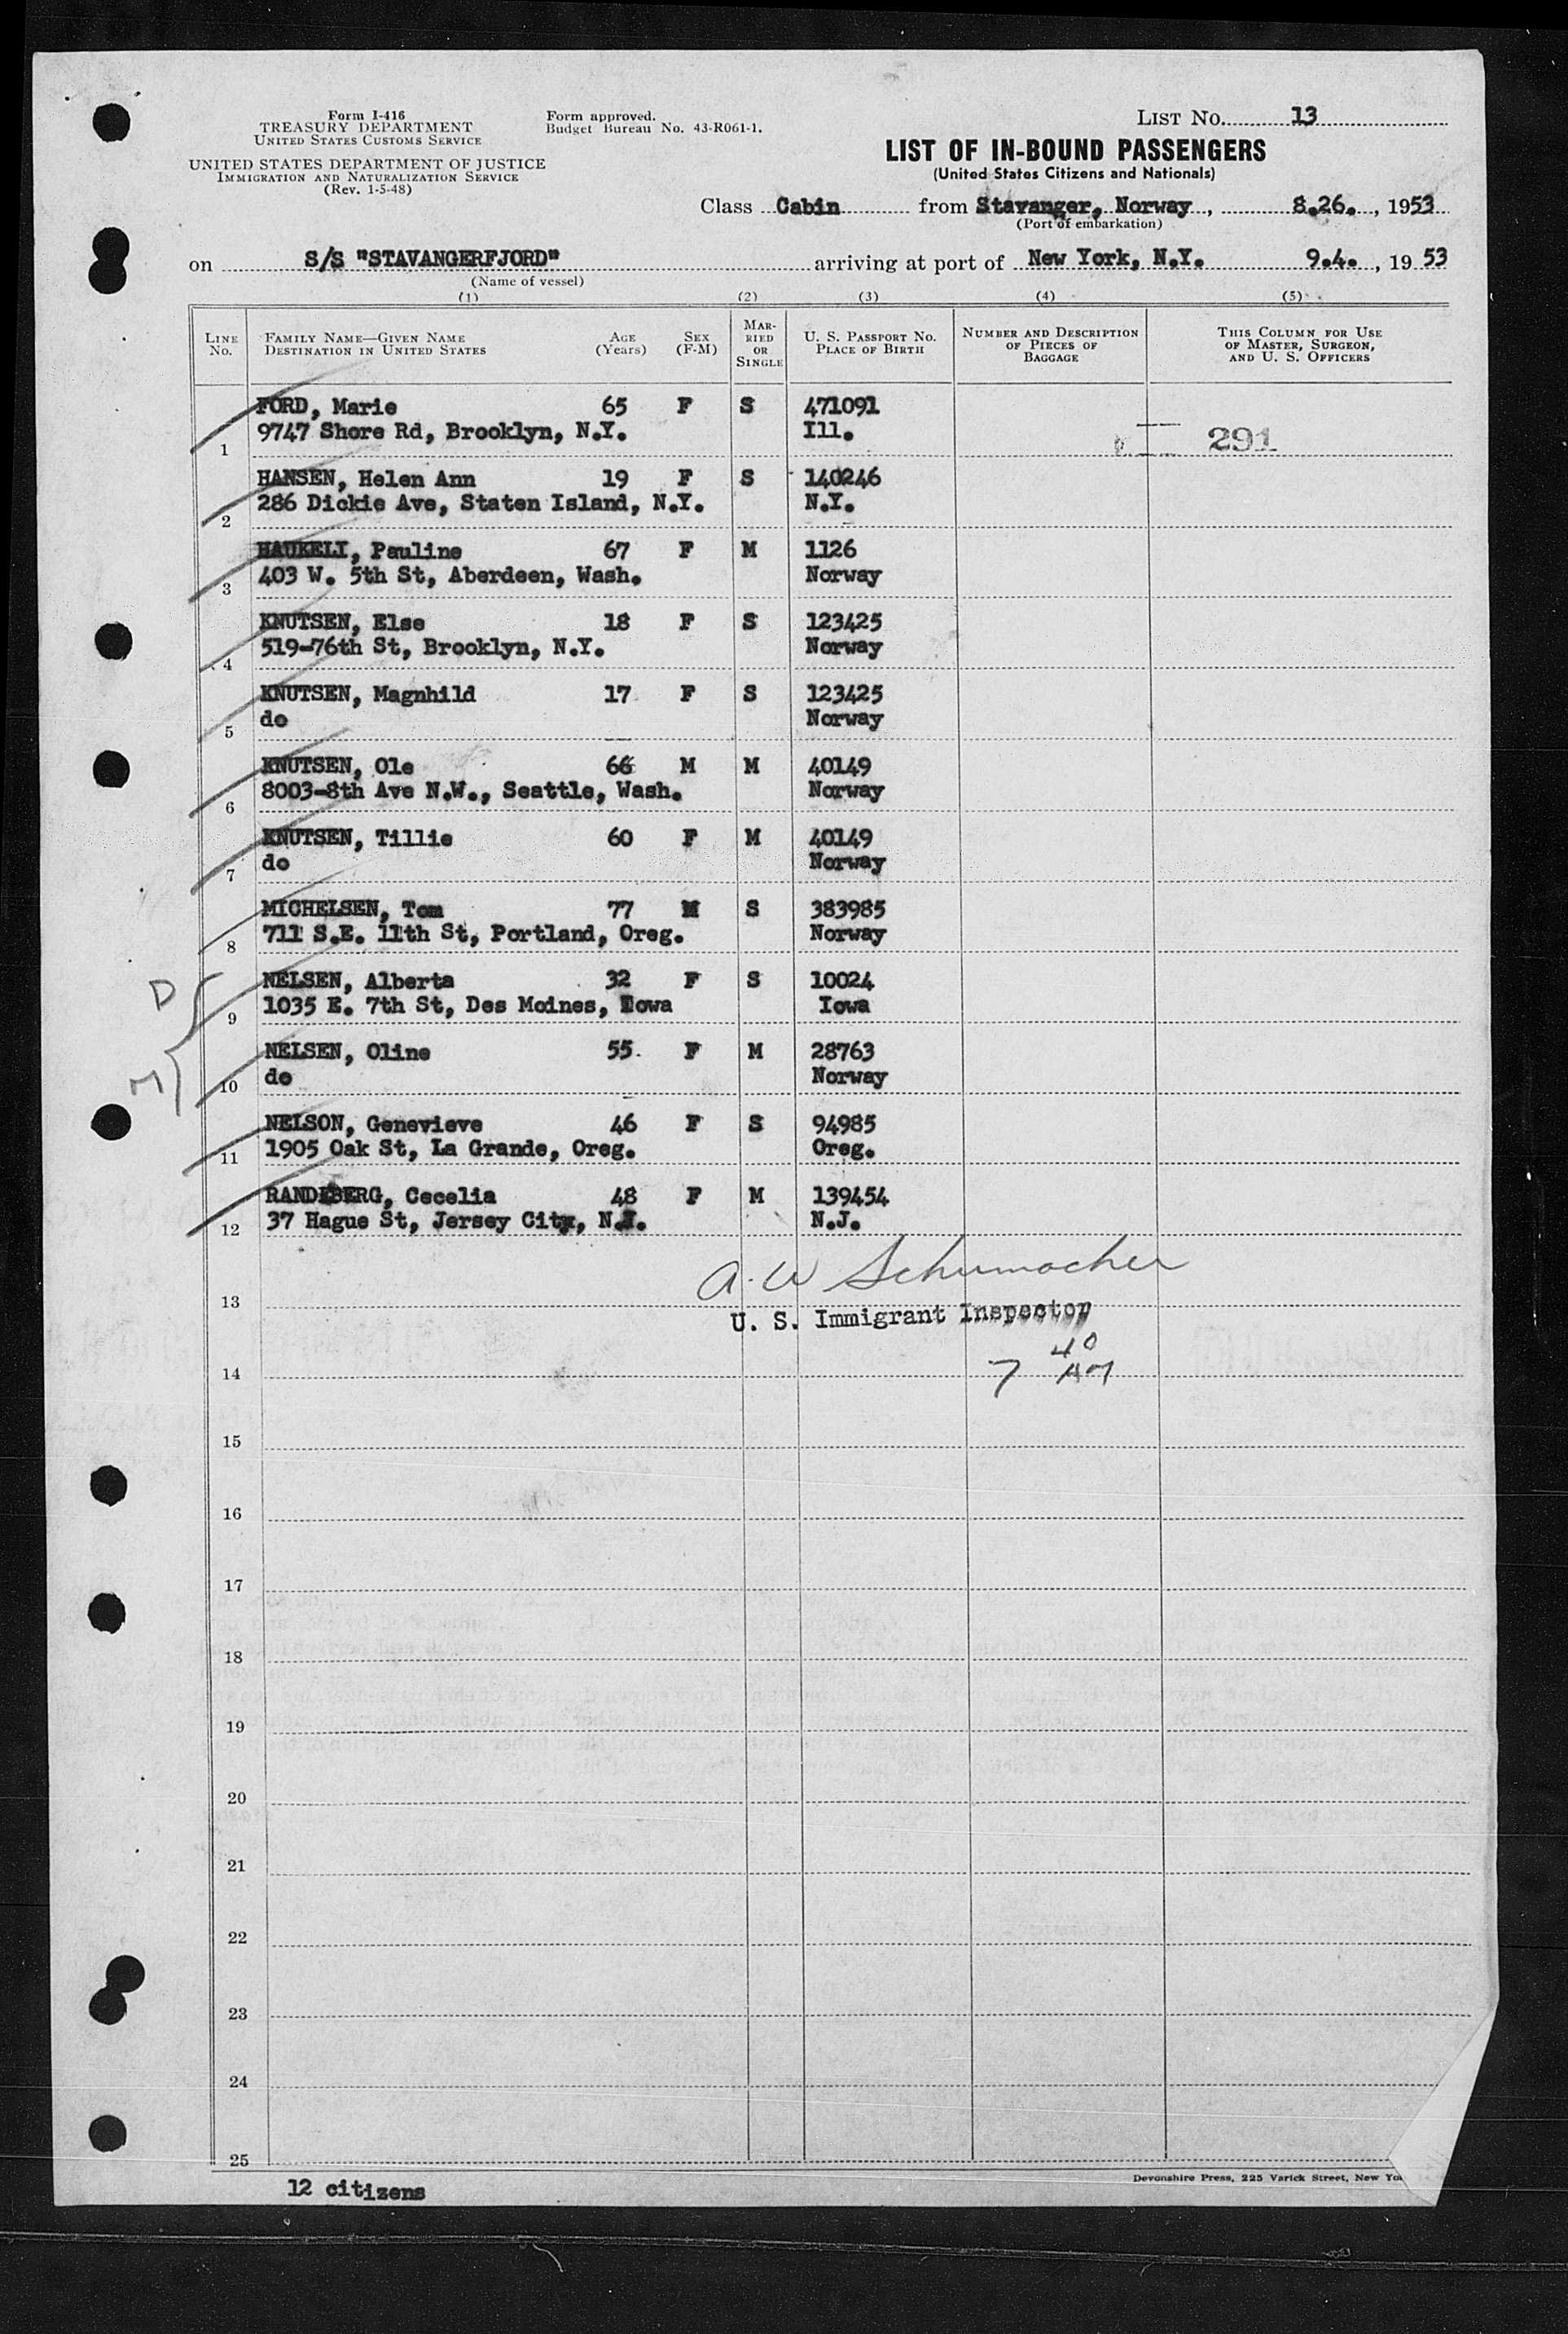 Form I-416
TREASURY DEPARTMENT
UNITED STATES CUSTOMS SERVICE
UNITED STATES DEPARTMENT OF JUSTICE
IMMIGRATION AND NATURALIZATION SERVICE
(Rev. 1-5-48)
Form approved.
Budget Bureau No. 43-R061-1.
LIST No. 13
LIST OF IN-BOUND PASSENGERS
(United States Citizens and Nationals)
Class Cabin from Stavanger, Norway, 8.26., 1953
(Port of embarkation)
on S/S "STAVANGERFJORD" arriving at port of New York, N.Y. 9.4., 19 53
(Name of vessel)
(1) (2) (3) (4) (5)
LINE No. FAMILY NAME—GIVEN NAME DESTINATION IN UNITED STATES AGE (Years) SEX (F-M) MARRIED OR SINGLE U. S. PASSPORT NO. PLACE OF BIRTH NUMBER AND DESCRIPTION OF PIECES OF BAGGAGE THIS COLUMN FOR USE OF MASTER, SURGEON, AND U. S. OFFICERS
FORD, Marie 65 F S 471091
1 9747 Shore Rd, Brooklyn, N.Y. Ill. 291
HANSEN, Helen Ann 19 F S 140246
2 286 Dickie Ave, Staten Island, N.Y. N.Y.
HAUKELI, Pauline 67 F M 1126
3 403 W. 5th St, Aberdeen, Wash. Norway
KNUTSEN, Else 18 F S 123425
4 519-76th St, Brooklyn, N.Y. Norway
KNUTSEN, Magnhild 17 F S 123425
5 do Norway
KNUTSEN, Ole 66 M M 40149
6 8003-8th Ave N.W., Seattle, Wash. Norway
KNUTSEN, Tillie 60 F M 40149
7 do Norway
MICHELSEN, Tom 77 M S 383985
8 711 S.E. 11th St, Portland, Oreg. Norway
D
NELSEN, Alberta 32 F S 10024
9 1035 E. 7th St, Des Moines, Iowa Iowa
M
NELSEN, Oline 55 F M 28763
10 do Norway
NELSON, Genevieve 46 F S 94985
11 1905 Oak St, La Grande, Oreg. Oreg.
RANDEBERG, Cecelia 48 F M 139454
12 37 Hague St, Jersey City, N.J. N.J.
A. W Schumacher
13
U. S. Immigrant Inspector
40
14 7
15
16
17
18
19
20
21
22
23
24
25
12 citizens
Devonshire Press, 225 Varick Street, New